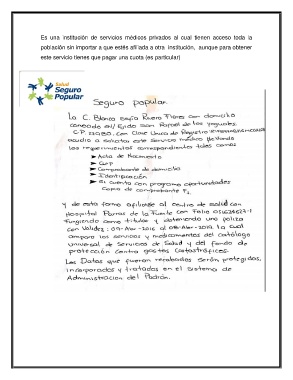 Es una institución de servicios médicos privados al cual tienen acceso toda la
población sin importar a que estés afiliada a otra institución, aunque para obtener
este servicio tienes que pagar una cuota (es particular)
Salud
Seguro
Popular
Seguro popular.
La C. Blanca Rivera Flores con domicilio
conocido en/ Ejido San Rafael de los
C.P. con Clave Unica de Registro
acudio a solicitar este servicio medico llevando
los requerimientos correspondientes tales como
➤ Acta de Nacimiento
➤ Curp
➤ Comprobante de domicilio
➤ Identificación
➤ Si cuenta con programa oportunidades
Copia de comprobante
y de esta forma afiliarse al centro de salud con
Hospital Parras de la Fuente con Folio
Fungiendo como titular y obteniendo una poliza
con Validez: al la cual
ampara los servicios y medicamentos del catálogo
universal de Servicios de Salud y del fondo de
protección contra gastos Catastróficos.
Los Datos que fueron recabados serán protegidos,
incorporados y tratados en el Sistema de
Administracion del Padrón.